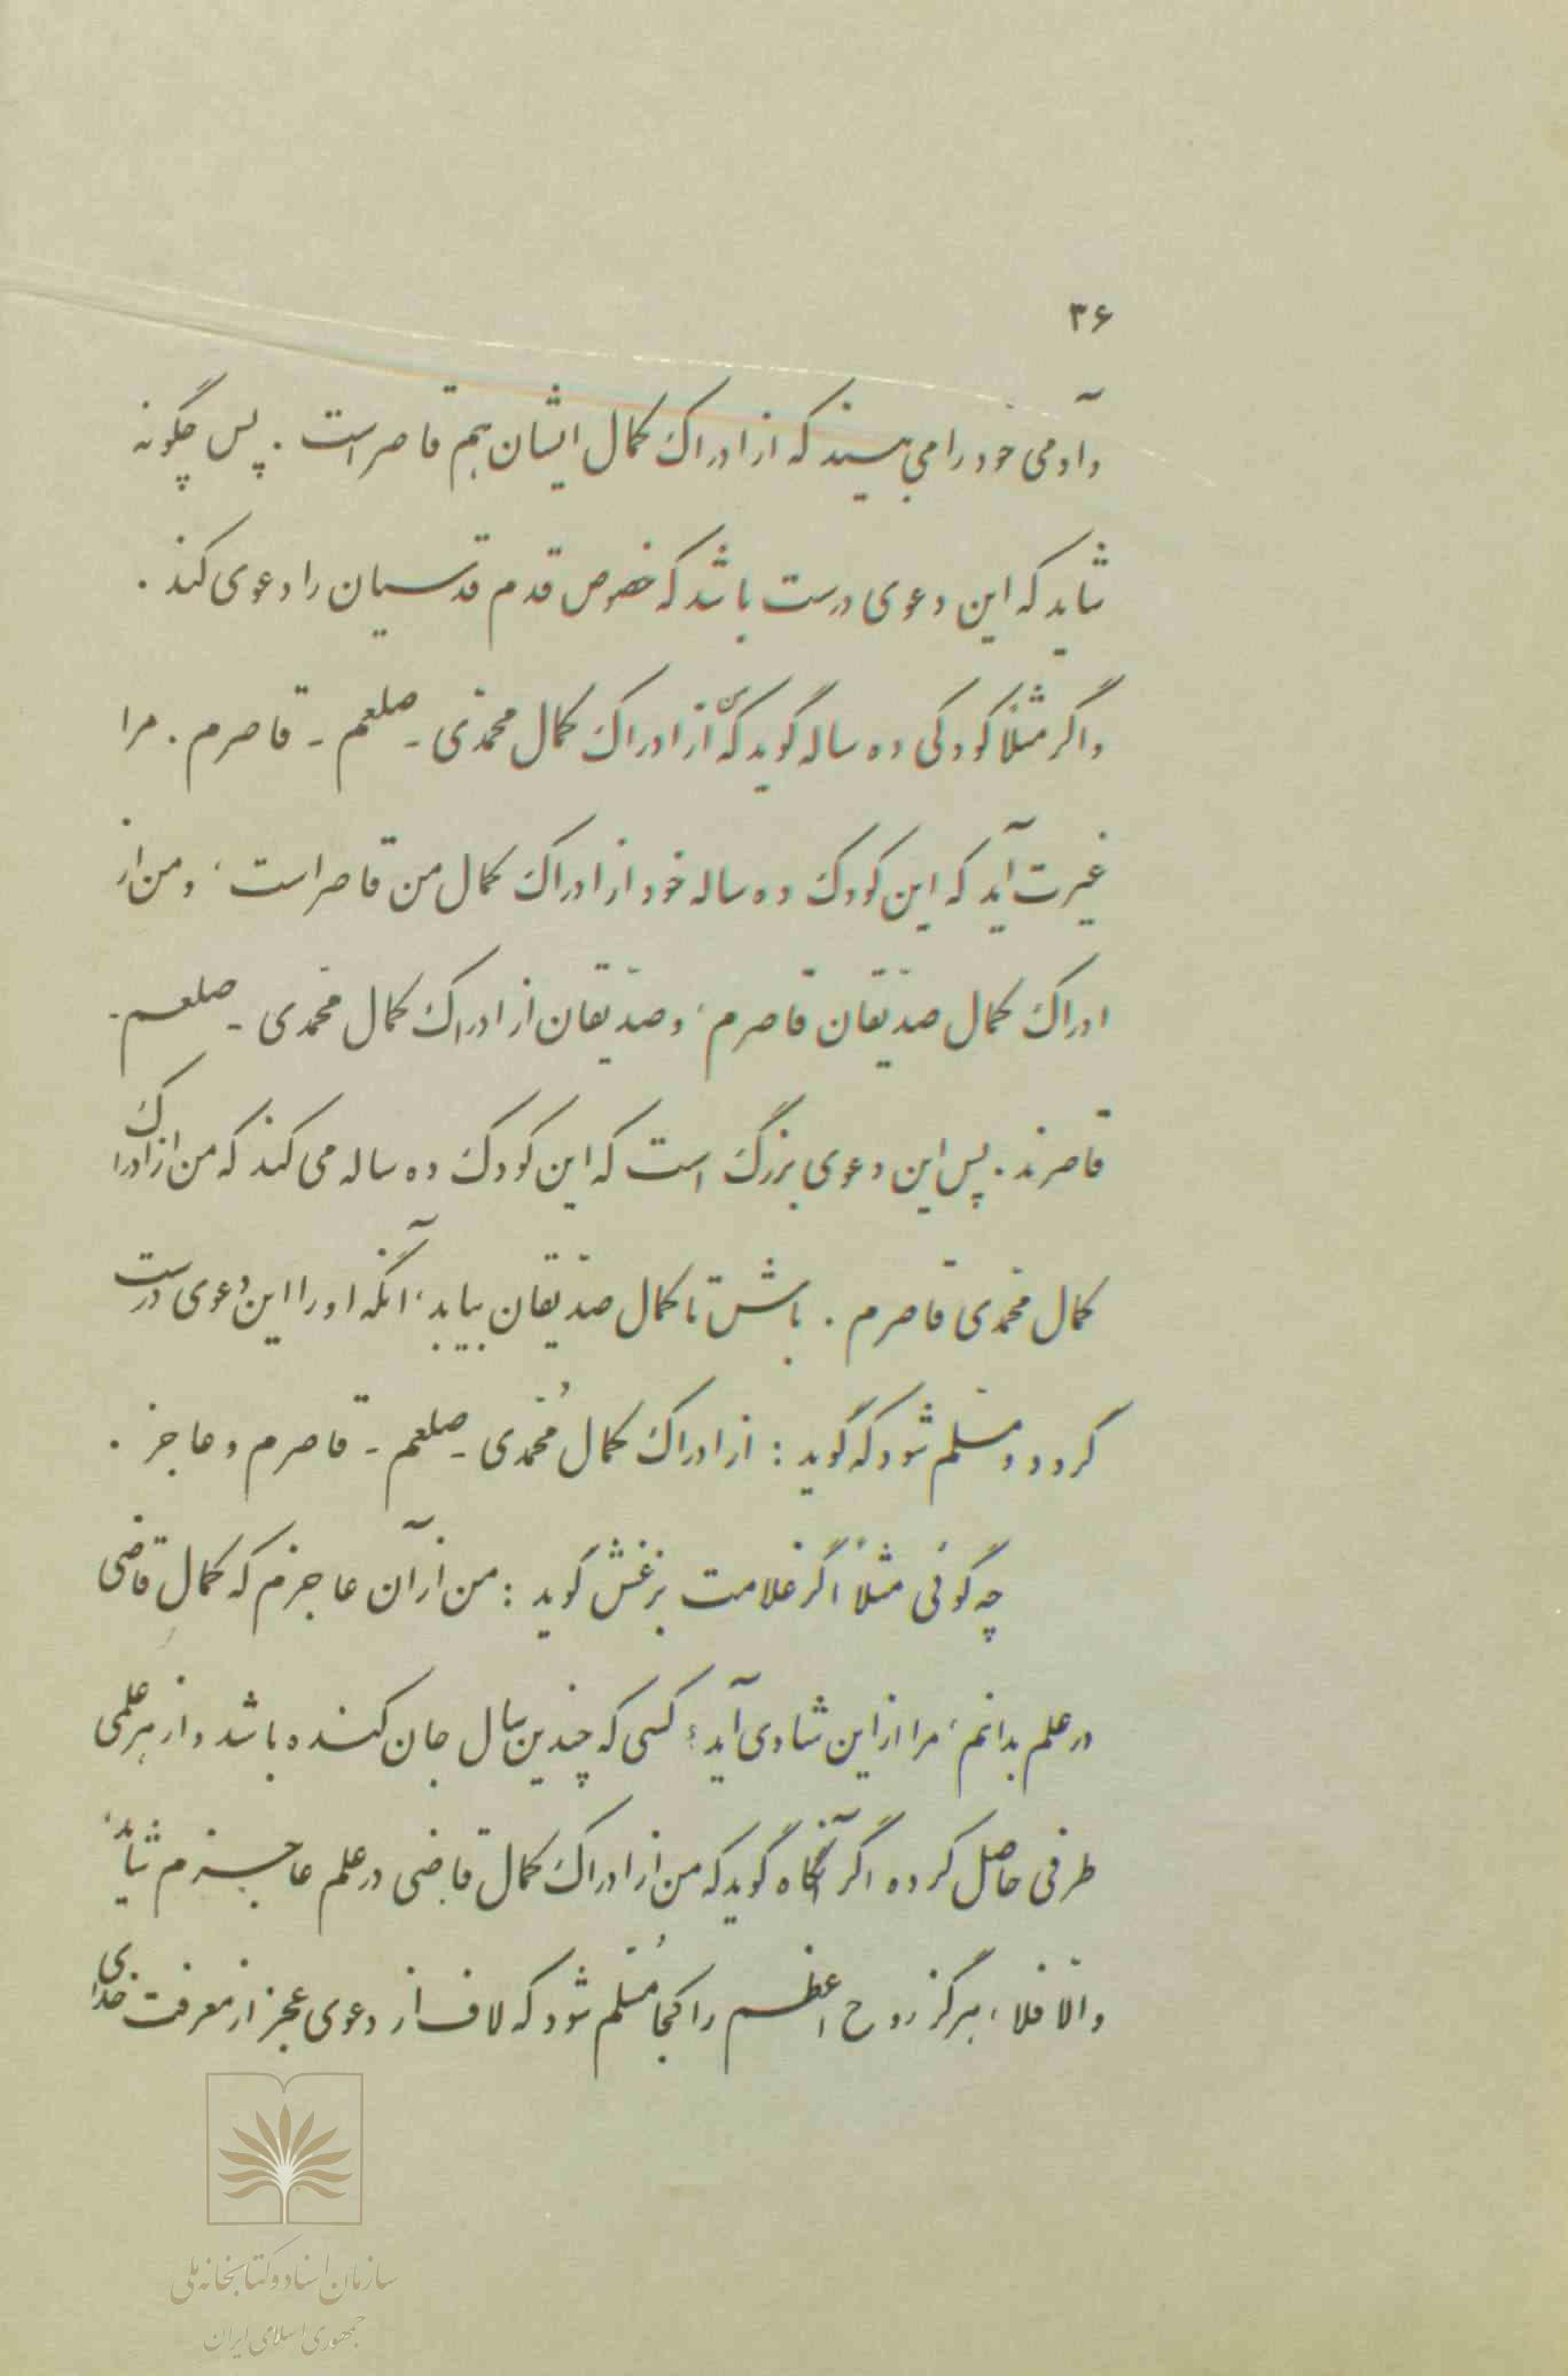 ۳۶
وآدمی خود را می‌بیند که از ادراک کمال ایشان هم قاصر است . پس چگونه
شاید که این دعوی درست باشد که خصوص قدم قدسیان را دعوی کند .
واگر مثلاً کودکی ده ساله گوید که من از ادراک کمال محمّدی - صلعم - قاصرم . مرا
غیرت آید که این کودک ده ساله خود از ادراک کمال من قاصر است ، و من از
ادراک کمال صدّیقان قاصرم ، و صدّیقان از ادراک کمال محمّدی - صلعم -
قاصرند . پس این دعوی بزرگ است که این کودک ده ساله می‌کند که من از ادراک
کمال محمّدی قاصرم . باش تا کمال صدّیقان بیابد ، آنگه او را این دعوی درست
گردد و مسلّم شود که گوید : از ادراک کمال مُحمّدی - صلعم - قاصرم و عاجز .
چه گوئی مثلاً اگر غلامت بزغش گوید : من از آن عاجزم که کمالِ قاضی
در علم بدانم ، مرا از این شادی آید ؛ کسی که چندین سال جان کنده باشد و از هر علمی
طرفی حاصل کرده اگر آنگاه گوید که من از ادراک کمال قاضی در علم عاجزم شاید ،
والّا فلا ، هرگز روح اعظم را کجا مُسلّم شود که لاف از دعوی عجز از معرفت خدای
سازمان اسناد و کتابخانه ملی
جمهوری اسلامی ایران